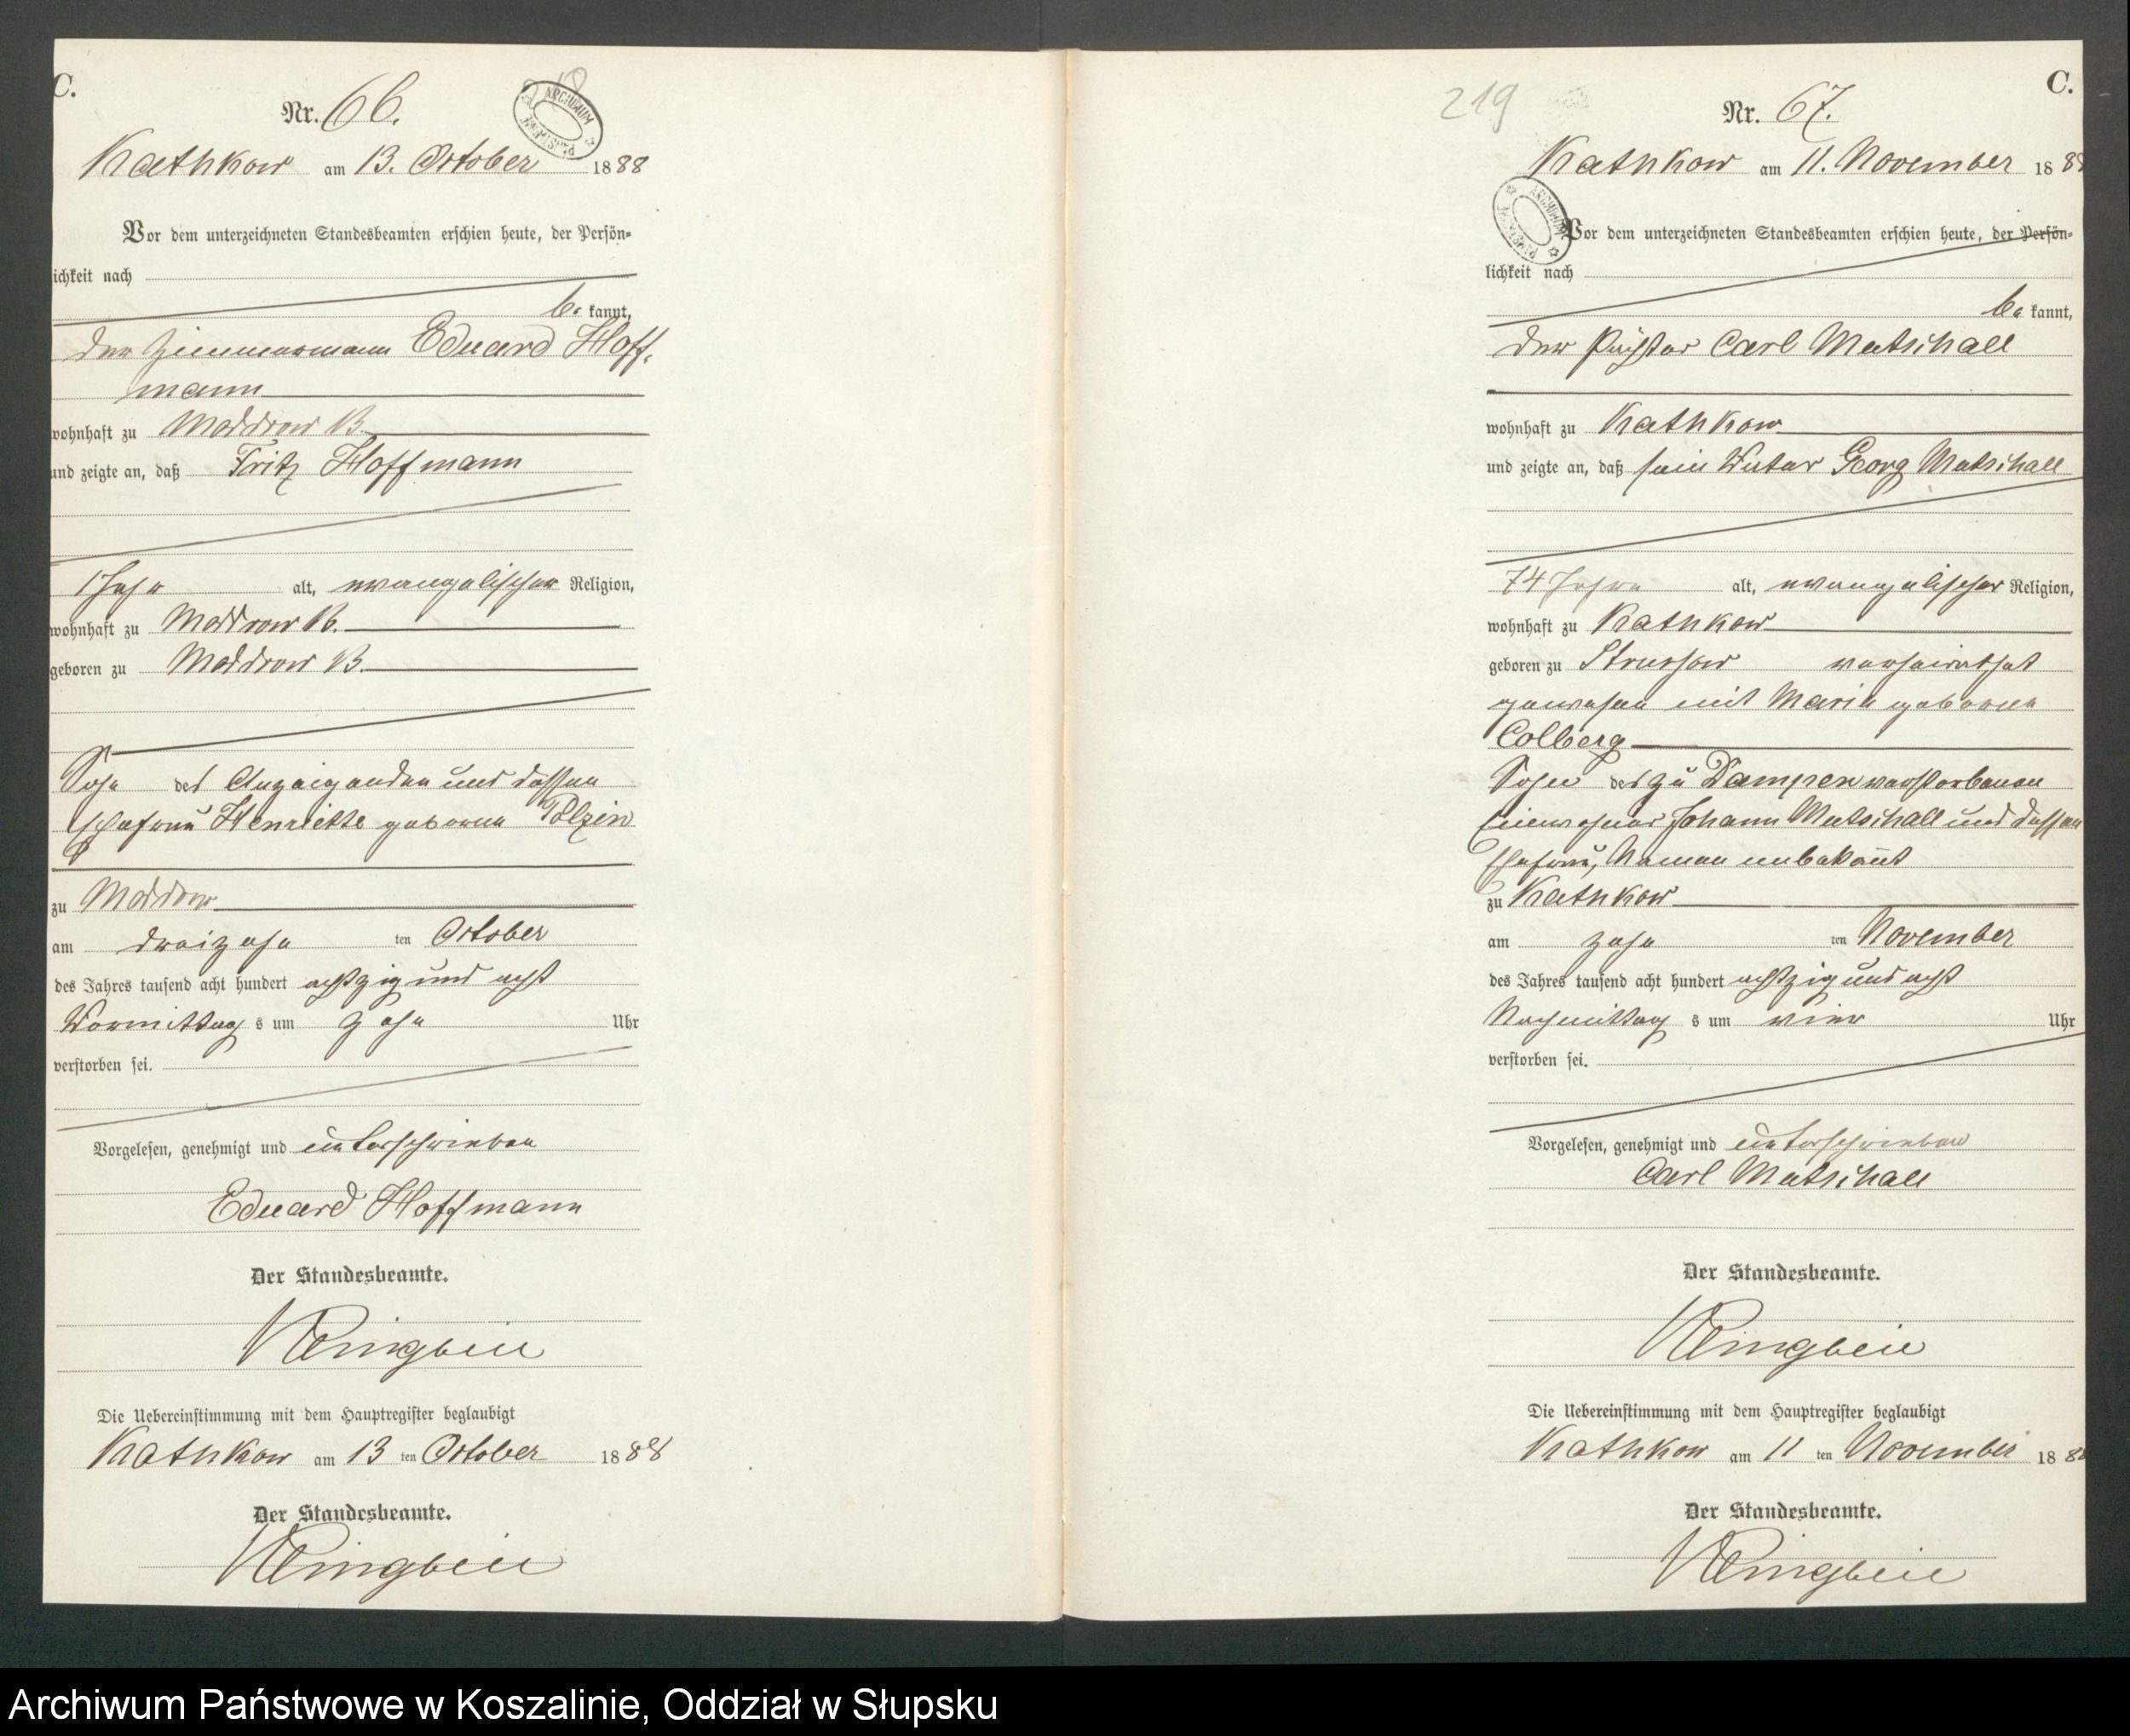 C.
Nr. 66.
ARCHIWUM
Kathkow am 13. October 1888
Vor dem unterzeichneten Standesbeamten erschien heute, der Persön-
lichkeit nach
be kannt,
der Zimmermann Eduard Hoff-
mann
wohnhaft zu Moddrow B.
und zeigte an, daß Fritz Hoffmann
1 Jahr alt, evangelischer Religion,
wohnhaft zu Moddrow B.
geboren zu Moddrow B.
Sohn des Anzeigenden und dessen
Ehefrau Henriette geborene Polzin
zu Moddrow
am dreizehn ten October
des Jahres tausend acht hundert achtzig und acht
Vormittag s um zehn Uhr
verstorben sei.
Vorgelesen, genehmigt und unterschrieben
Eduard Hoffmann
Der Standesbeamte.
Die Uebereinstimmung mit dem Hauptregister beglaubigt
Kathkow am 13 ten October 1888
Der Standesbeamte.
C.
219
Nr. 67.
Kathkow am 11. November 1888
ARCHIWUM
Vor dem unterzeichneten Standesbeamten erschien heute, der Persön-
lichkeit nach
be kannt,
der Carl Matschall
wohnhaft zu Kathkow
und zeigte an, daß sein Vater Georg Matschall
74 Jahre alt, evangelischer Religion,
wohnhaft zu Kathkow
geboren zu Strussow verheirathet
gewesen mit Marie geborene
Colberg
Sohn des zu Dampen verstorbenen
Einwohner Johann Matschall und dessen
Ehefrau, Namen unbekannt
zu Kathkow
am zehn ten November
des Jahres tausend acht hundert achtzig und acht
Nachmittag s um vier Uhr
verstorben sei.
Vorgelesen, genehmigt und unterschrieben
Carl Matschall
Der Standesbeamte.
Die Uebereinstimmung mit dem Hauptregister beglaubigt
Kathkow am 11 ten November 1888
Der Standesbeamte.
Archiwum Państwowe w Koszalinie, Oddział w Słupsku